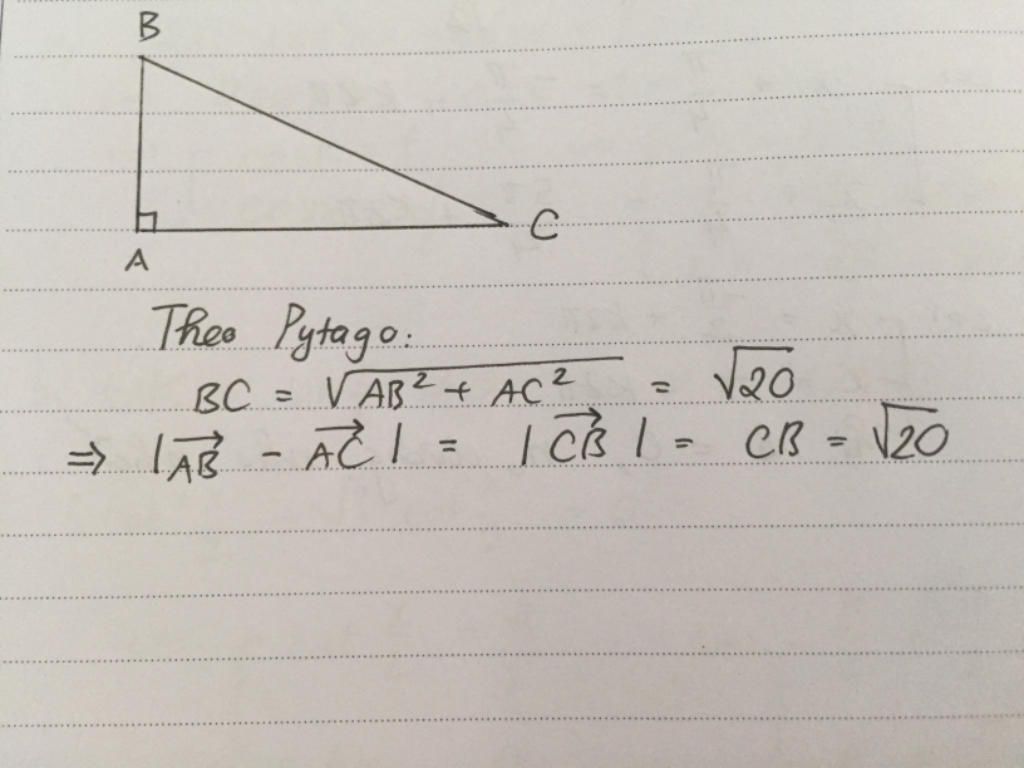 B
A
C
Theo Pytago:
BC = √(AB² + AC²) = √20
⇒ |\overrightarrow{AB} - \overrightarrow{AC}| = |\overrightarrow{CB}| = CB = √20